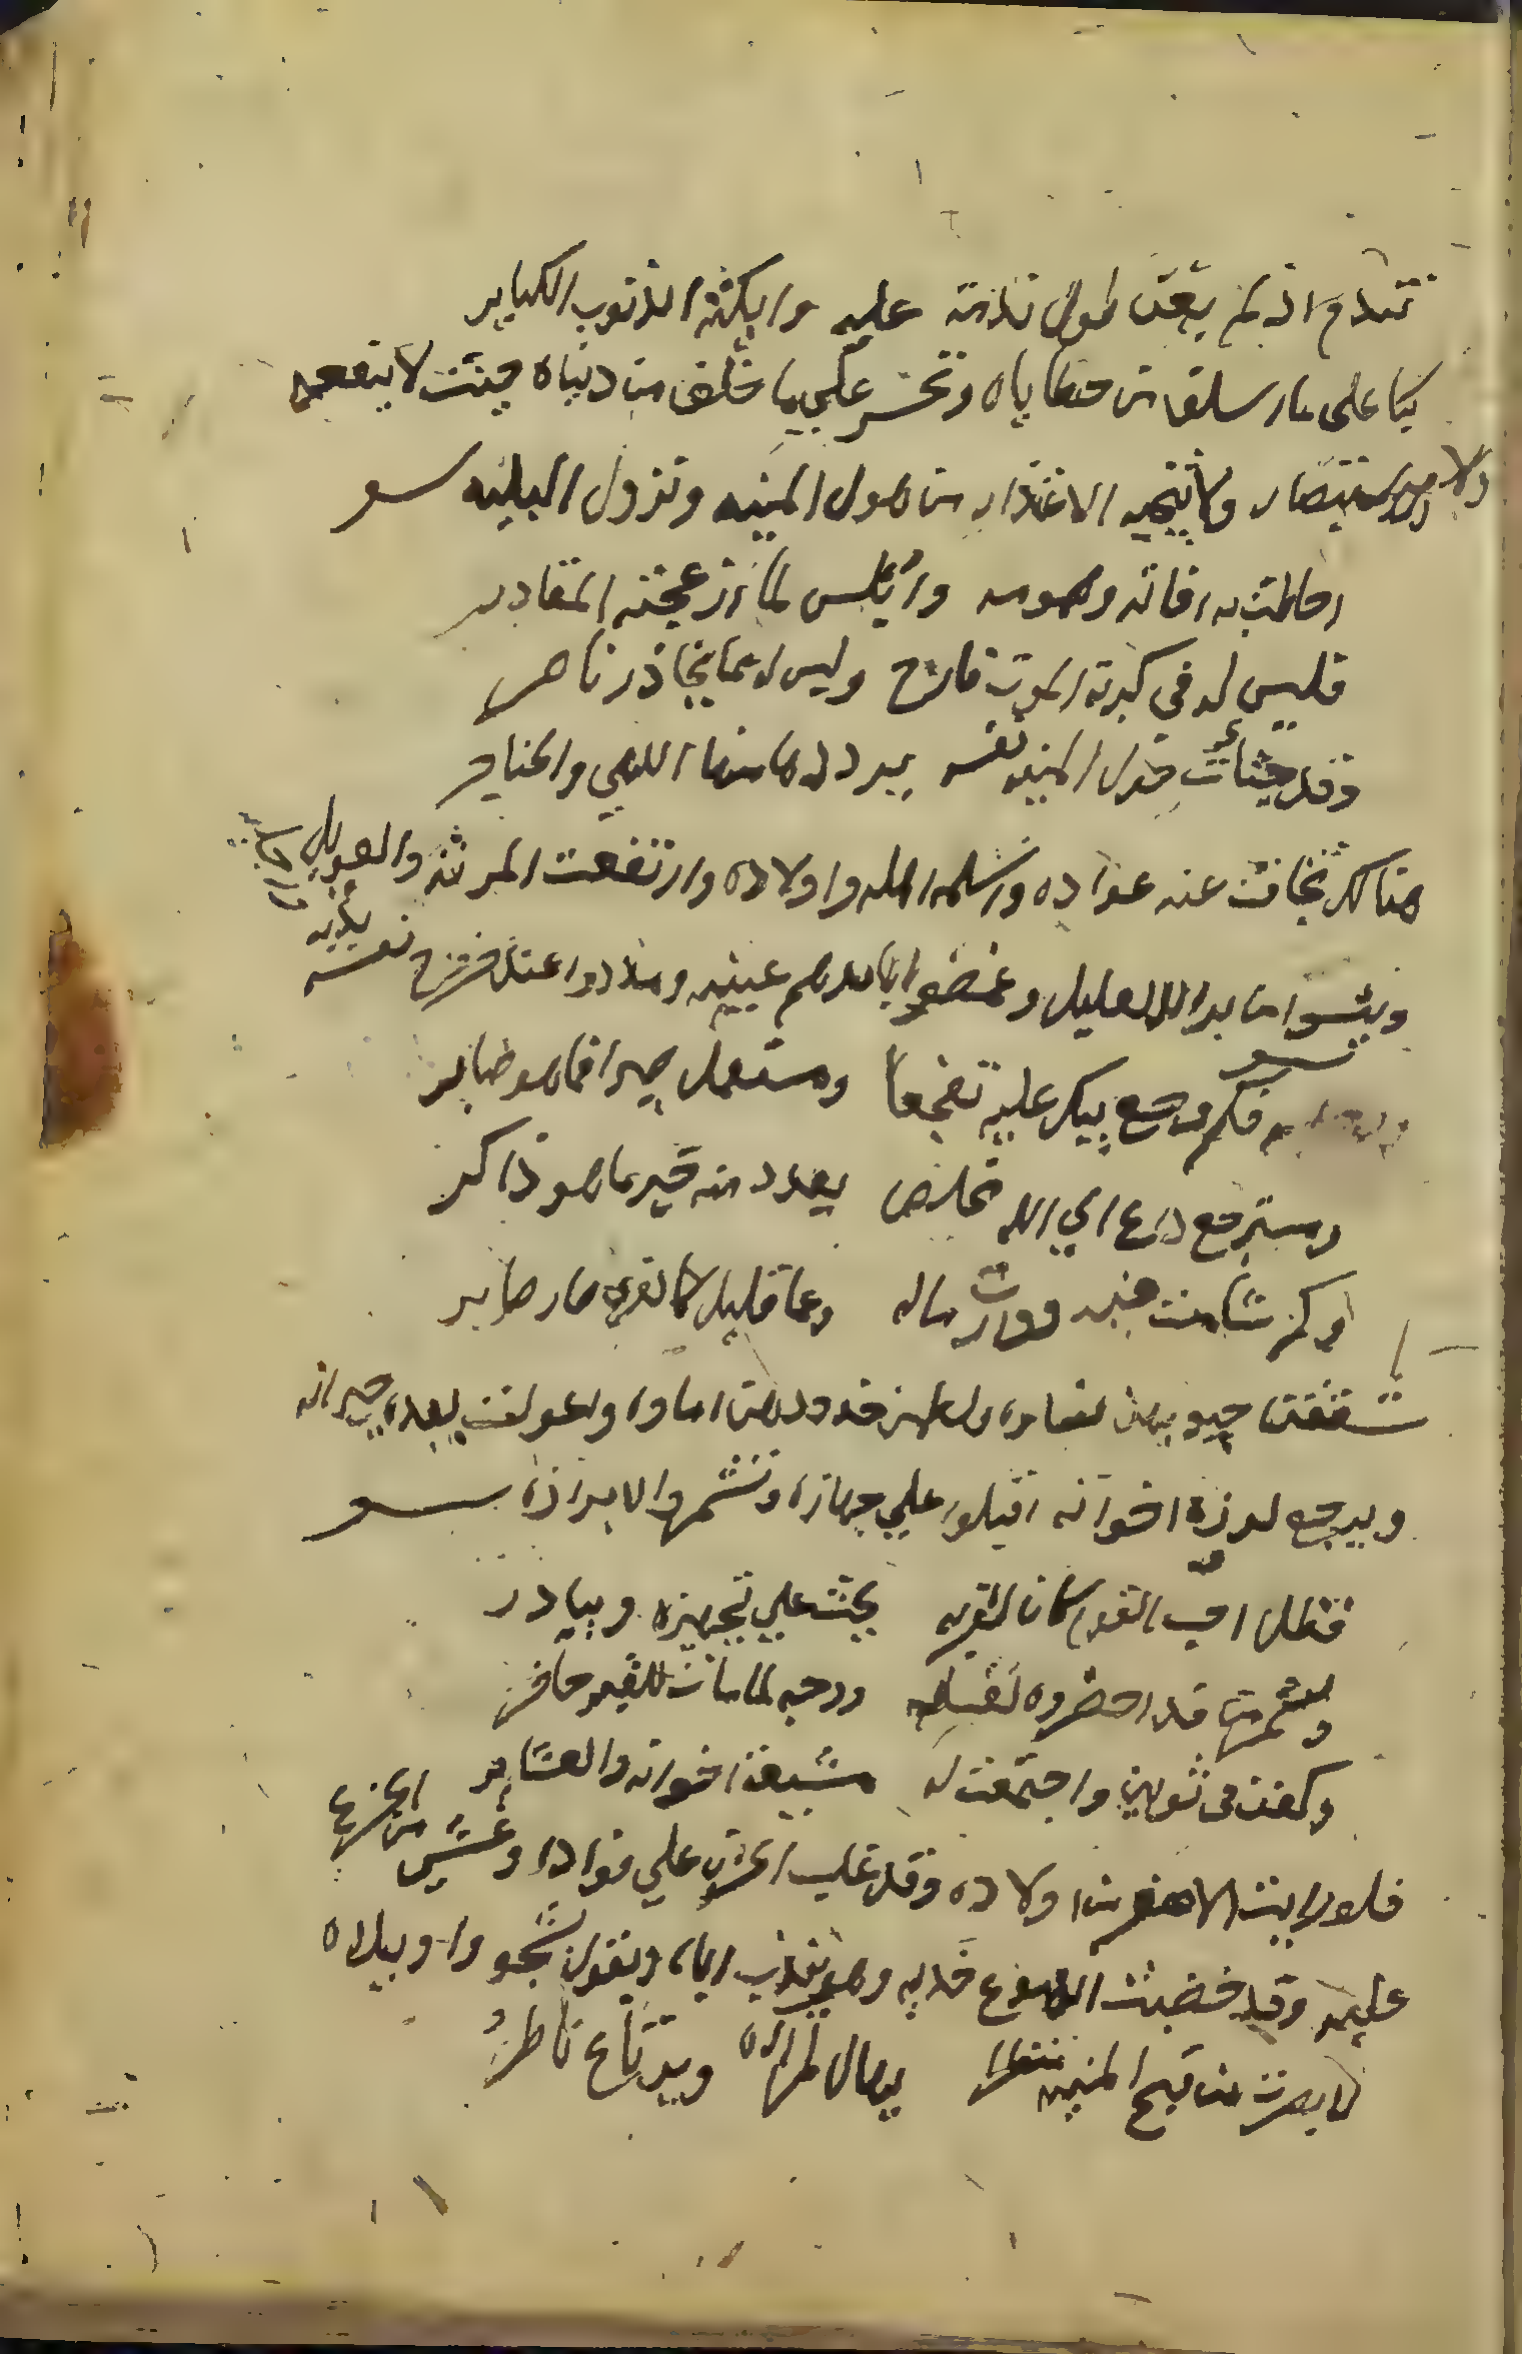 تندم اذ لم يغن طول ندامة عليه وابكته الذنوب الكباير
بكا على ما سلف من خطاياه وتحسر علي ما خلف من دنياه حيث لا ينفعه
ولا ينجيه الاعتذار من هول المنيه ونزول البليه
احاطت به افاته وهمومه وابلس لما ازعجته المقادر
فليس له في كربة الموت فارج وليس له مما يحاذر ناصر
وقد جشأت خوف المنيه نفسه يرددها منها اللهي والحناجر
هنالك تجافت عنه عواده واسلمه اهله واولاده وارتفعت المرنه والعويل
ويئسوا من براء العليل وغمضوا بايديهم عينيه ومدوا عند خروج نفسه يديه ورجليه
فكم موجع يبكي عليه تفجعا ومستعمل صبرا فما هو صابر
ومسترجع داع الي الله مخلص يعدد منه خير ما هو ذاكر
وكم شامت وراث ماله وعما قليل كالذي صار صاير
شققت جيوبهن نساوه ولطمن خدودهن اماوه واعولت لبعده جيرانه
ويرجع لرزه اخوانه اقبلوا علي جهازه وتشمروا لابرازه
فظل احب القوم كان لقربه يحث علي تجهيزه ويبادر
وشمر من قد احضروه لغسله ووجه لما مات للقبر حافر
وكفن في ثوبين واجتمعت له مشيعة اخوانه والعشاير
فلو رايت الاصغر من اولاده وقد غلب الحزن علي فواده وغشي من الجزع
عليه وقد خضبت الدموع خديه وهو يندب اباه ويقول بشجو واويلاه
لابصرت من قبح المنيه منظرا يهال لمراه ويرتاع ناظر